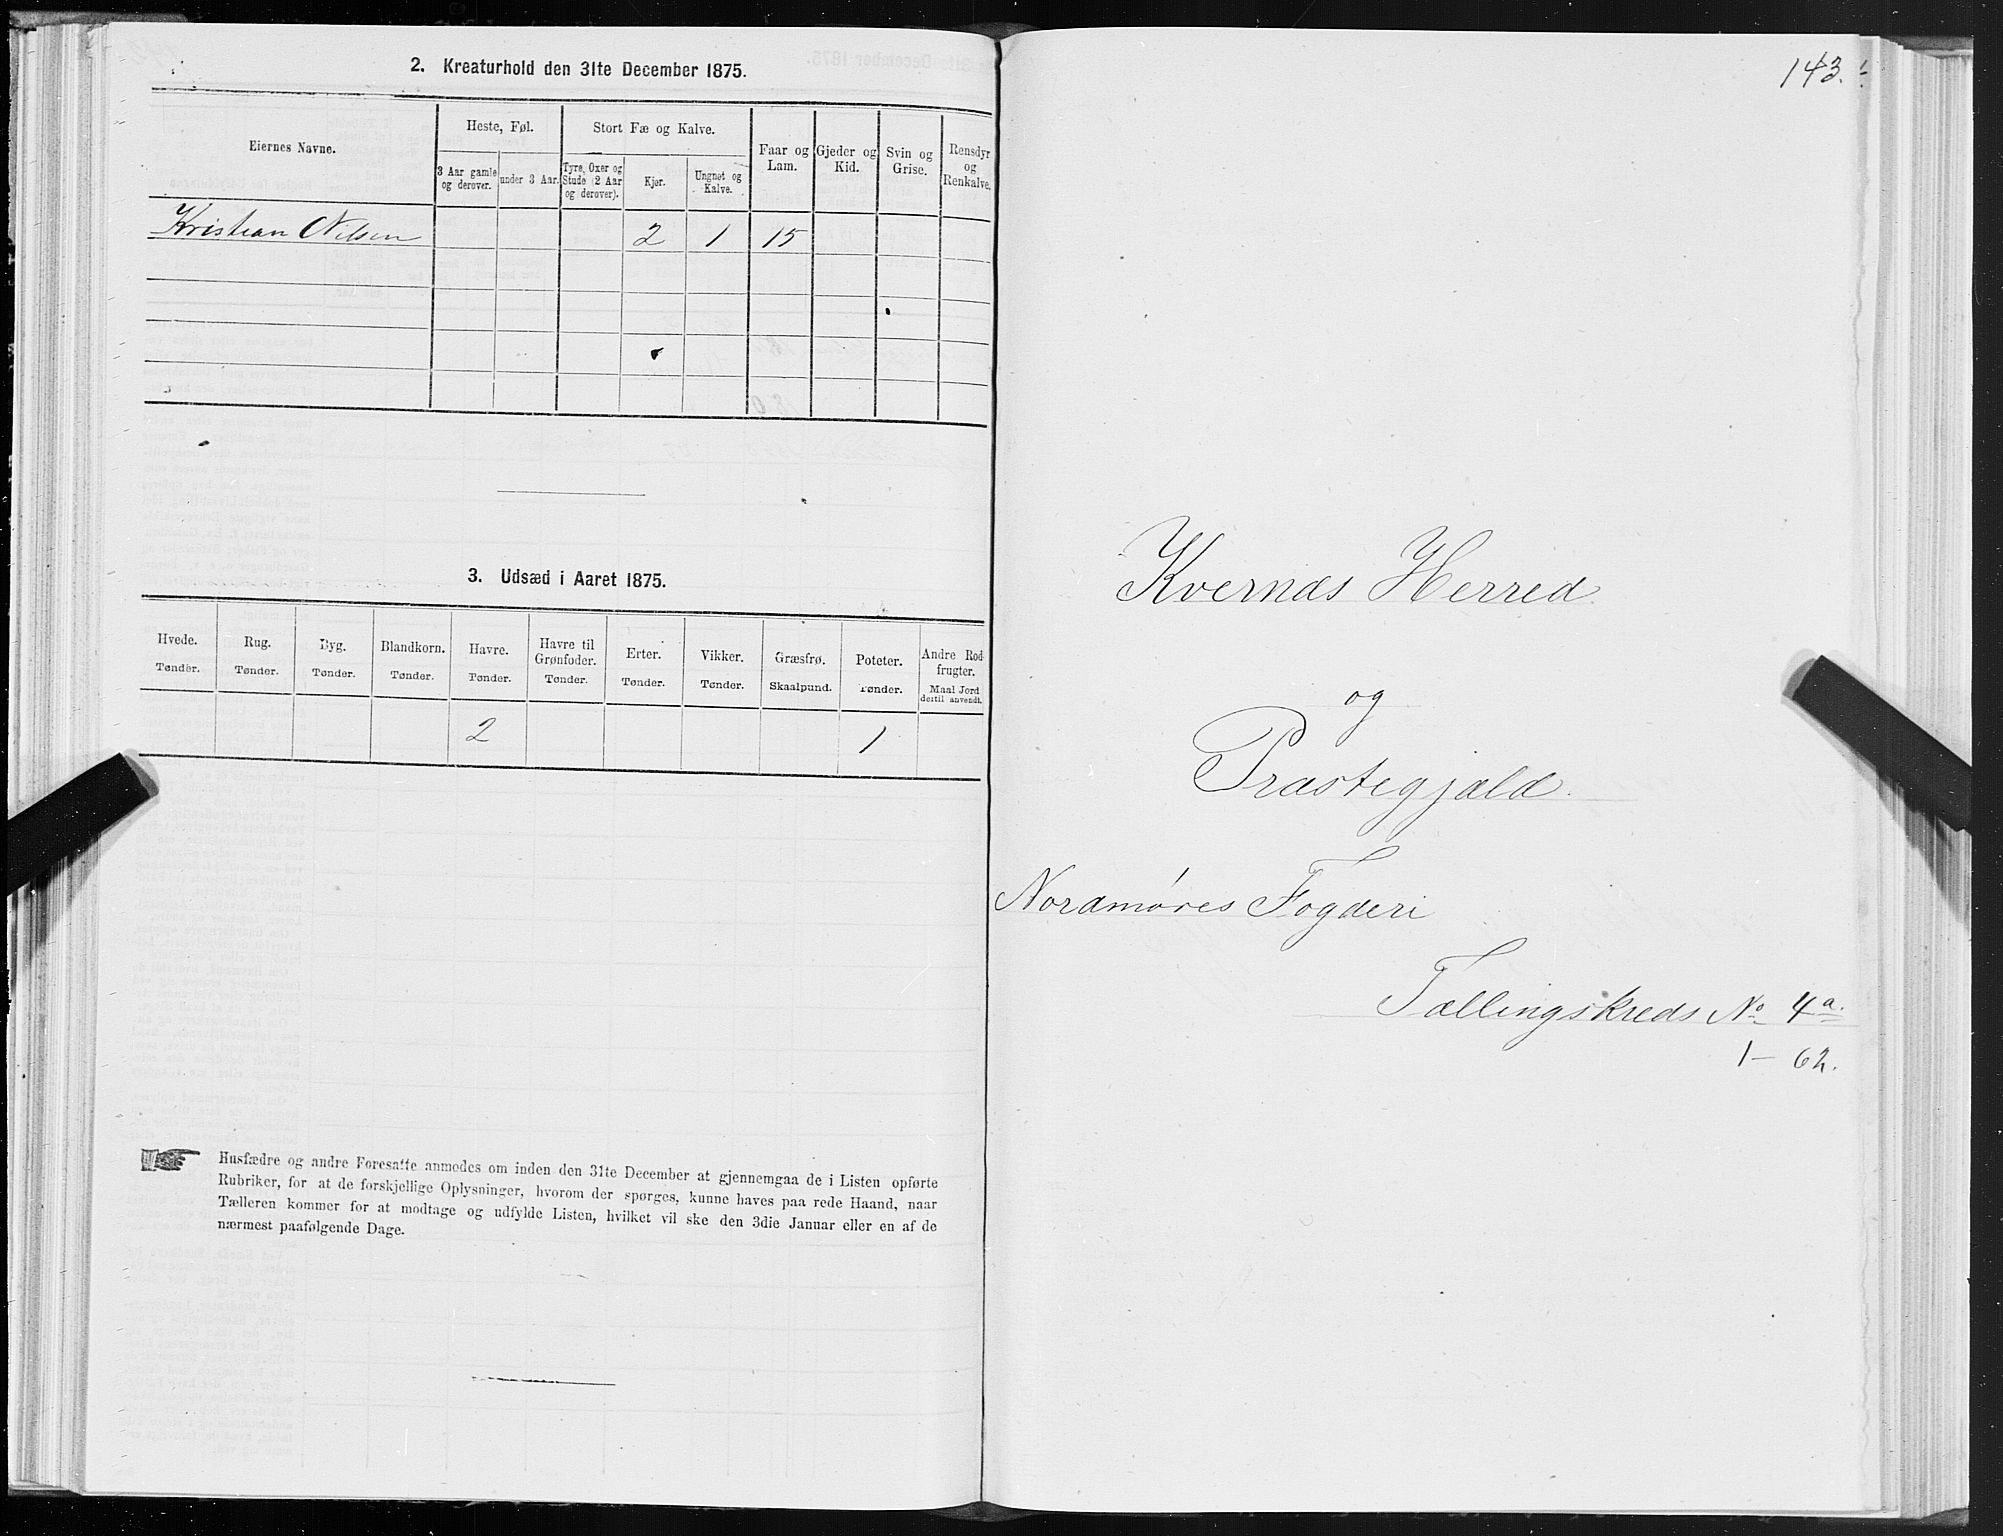 2. Kreaturhold den 31te December 1875.
Eiernes Navne.
Heste, Føl.
Stort Fæ og Kalve.
Faar og Lam.
Gjeder og Kid.
Svin og Grise.
Rensdyr og Renkalve.
3 Aar gamle og derover.
under 3 Aar.
Tyre, Oxer og Stude (2 Aar og derover).
Kjør.
Ungnet og Kalve.
Kristian Nilsen 2 1 15
3. Udsæd i Aaret 1875.
Hvede. Rug. Byg. Blandkorn. Havre. Havre til Grønfoder. Erter. Vikker. Græsfrø. Poteter. Andre Rodfrugter.
Tønder. Tønder. Tønder. Tønder. Tønder. Tønder. Tønder. Tønder. Skaalpund. Tønder. Maal Jord dertil anvendt.
2 1
Husfædre og andre Foresatte anmodes om inden den 31te December at gjennemgaa de i Listen opførte
Rubriker, for at de forskjellige Oplysninger, hvorom der spørges, kunne haves paa rede Haand, naar
Tælleren kommer for at modtage og udfylde Listen, hvilket vil ske den 3die Januar eller en af de
nærmest paafølgende Dage.
143.
Kvernæs Herred
og
Præstegjæld.
Nordmøres Fogderi
Tællingskreds No 4a.
1 — 62.